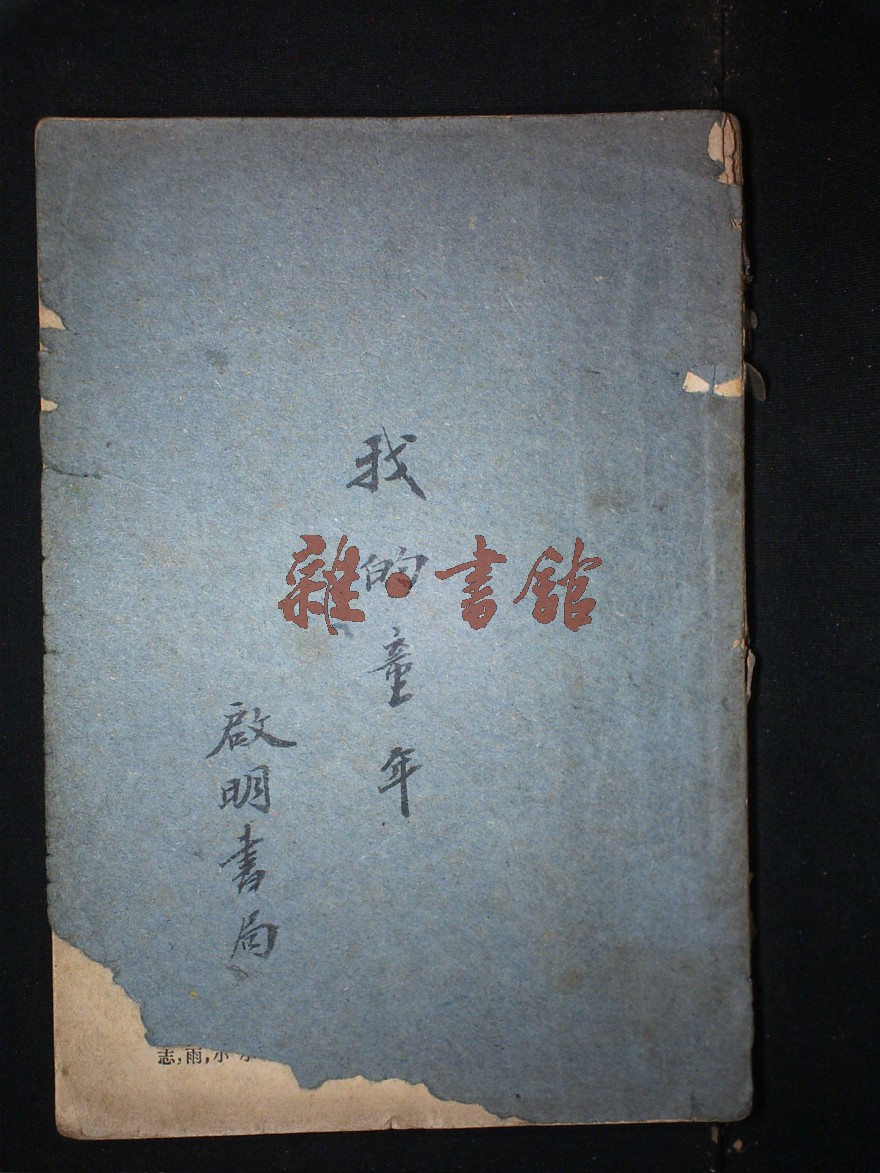 我的童年
啟明書局
雜·書館
志,雨,小